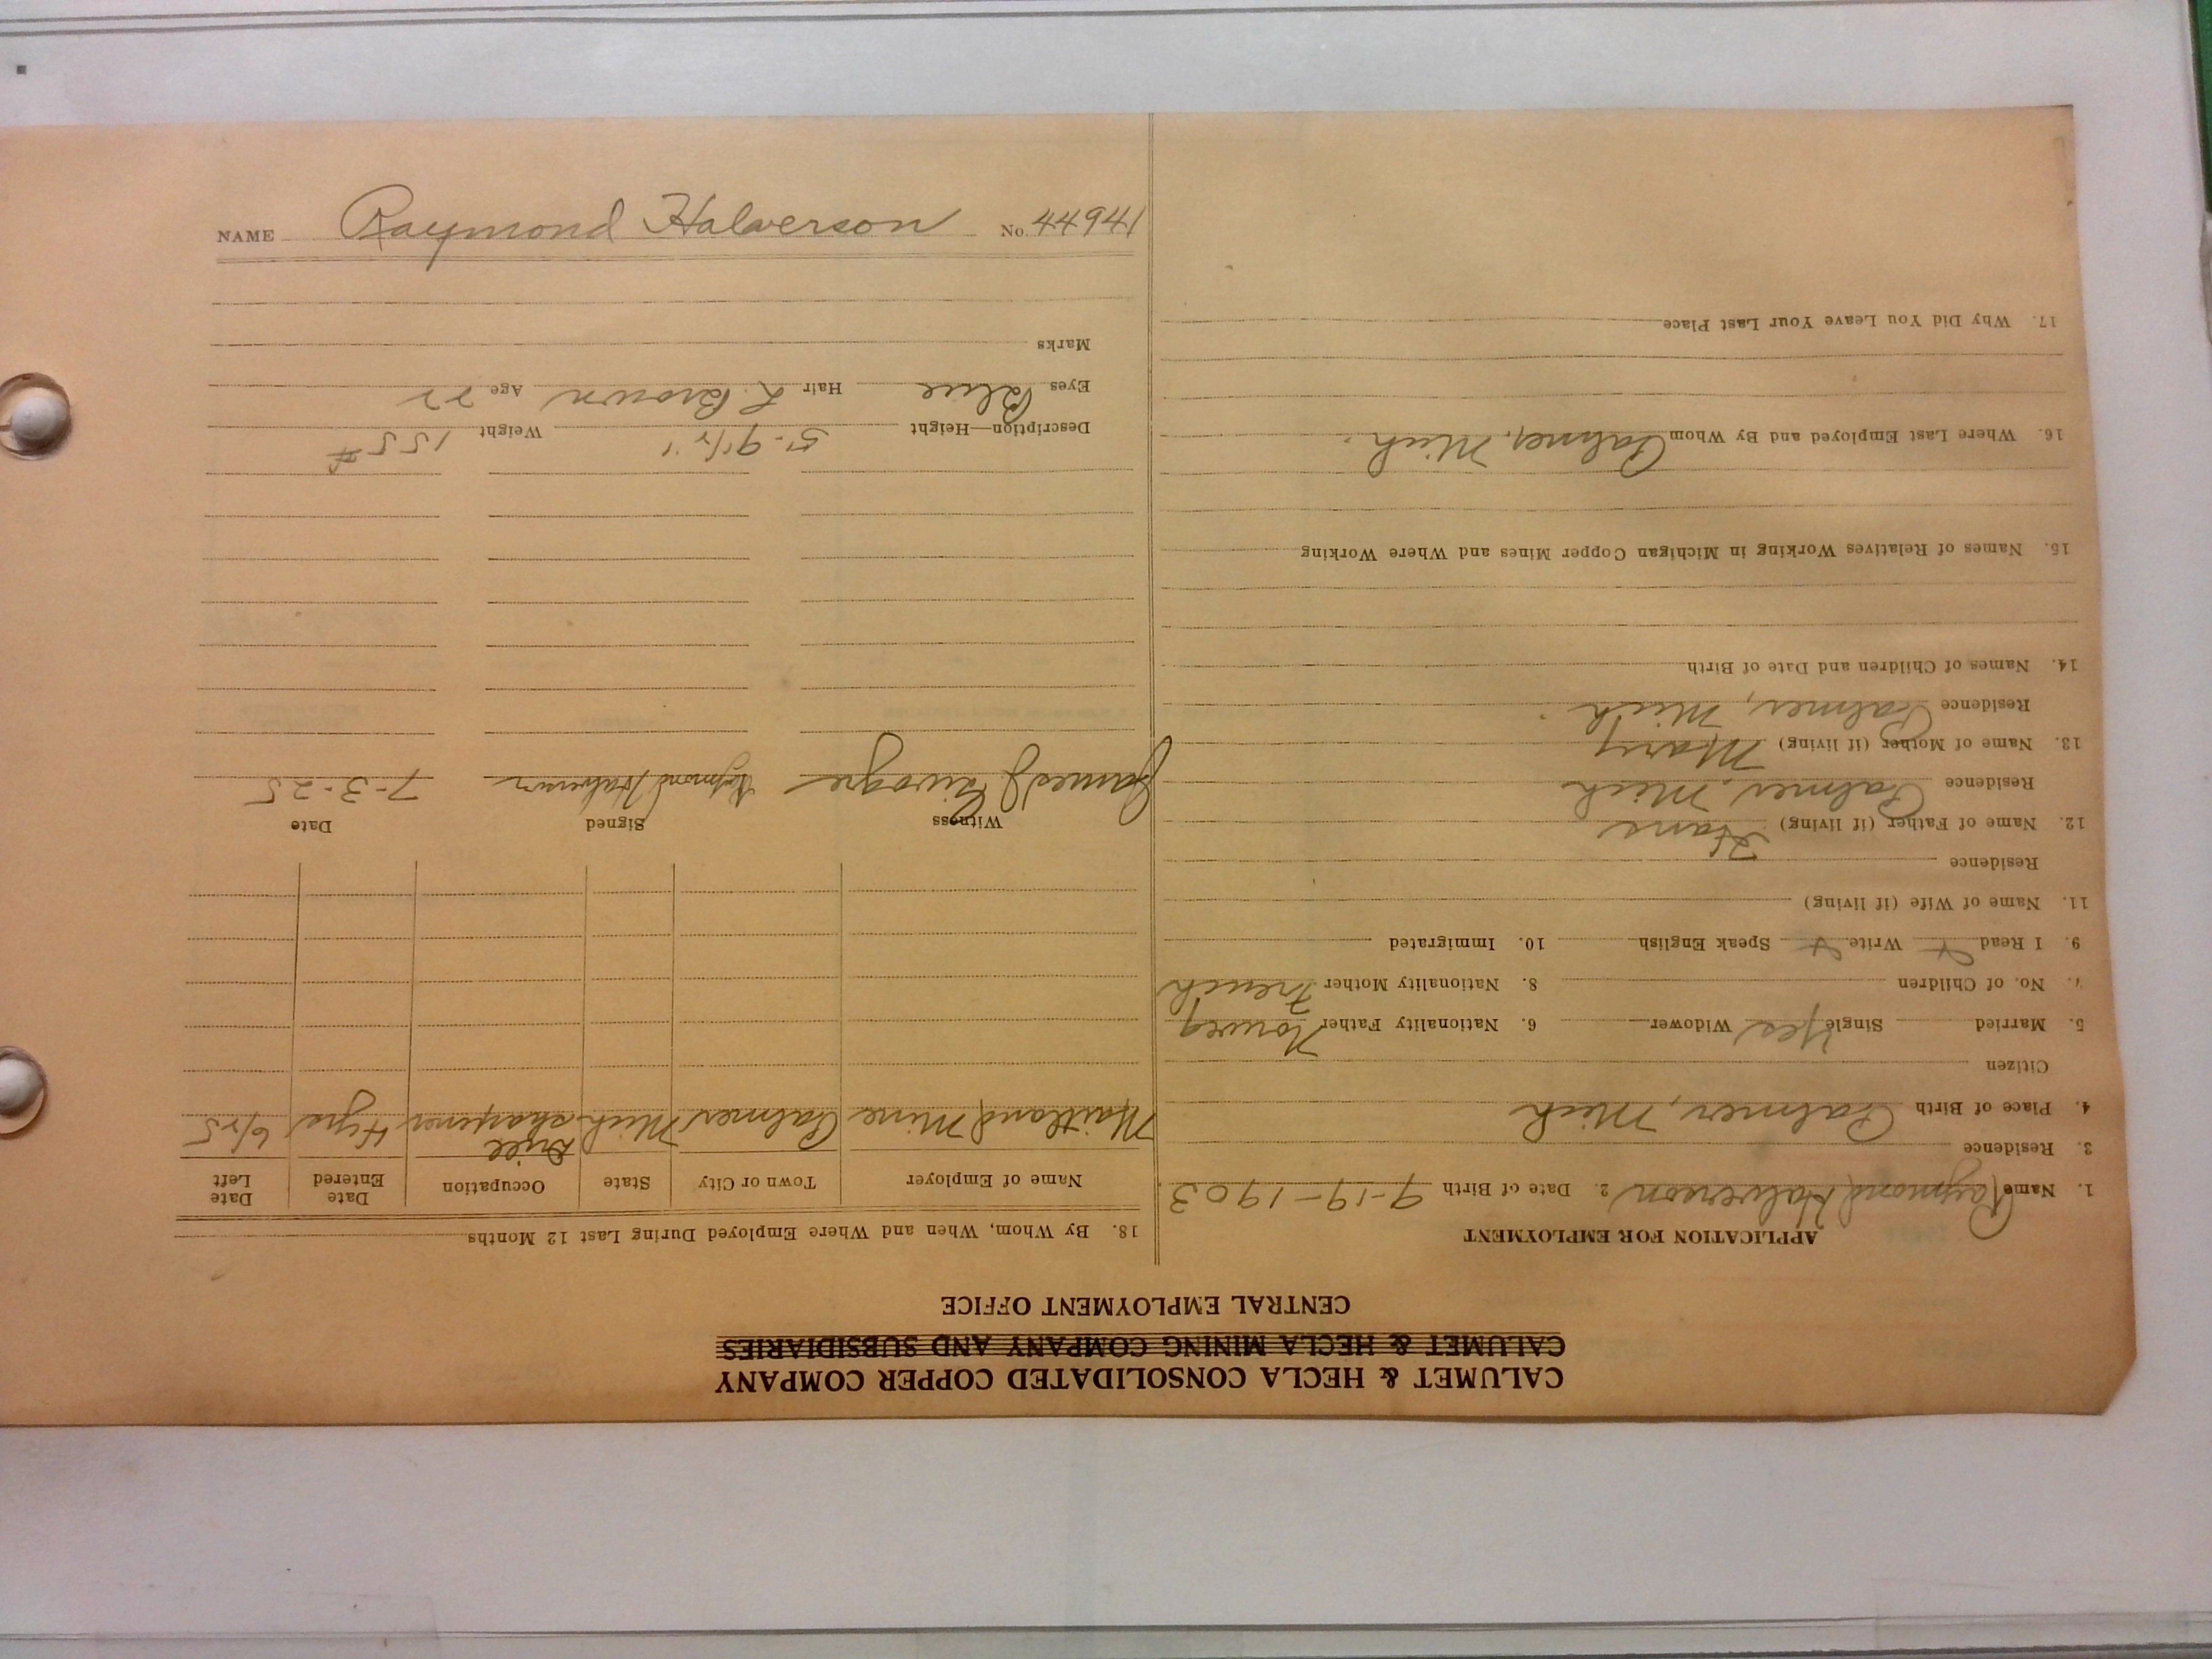 NAME Raymond Halverson No. 44941
CALUMET & HECLA CONSOLIDATED COPPER COMPANY
CALUMET & HECLA MINING COMPANY AND SUBSIDIARIES
CENTRAL EMPLOYMENT OFFICE
APPLICATION FOR EMPLOYMENT
1. Name Raymond Halverson 2. Date of Birth 9-19-1903
3. Residence
4. Place of Birth Palmer, Mich
Citizen
5. Married Single Yes Widower 6. Nationality Father Norweg
7. No. of Children 8. Nationality Mother French
9. I Read Write Speak English 10. Immigrated
11. Name of Wife (if living)
Residence
12. Name of Father (if living) Hans
Residence Palmer, Mich
13. Name of Mother (if living) Mary
Residence Palmer, Mich.
14. Names of Children and Date of Birth
15. Names of Relatives Working in Michigan Copper Mines and Where Working
16. Where Last Employed and By Whom Palmer, Mich.
17. Why Did You Leave Your Last Place
18. By Whom, When and Where Employed During Last 12 Months
Name of Employer Town or City State Occupation Date Entered Date Left
Maitland Mine Palmer Mich Drill sharpener 4 yrs 6/25
Witness Signed Date
James Raymond Halverson 7-3-25
Description—Height 5'-9 1/2" Weight 155#
Eyes Blue Hair L. Brown Age 22
Marks